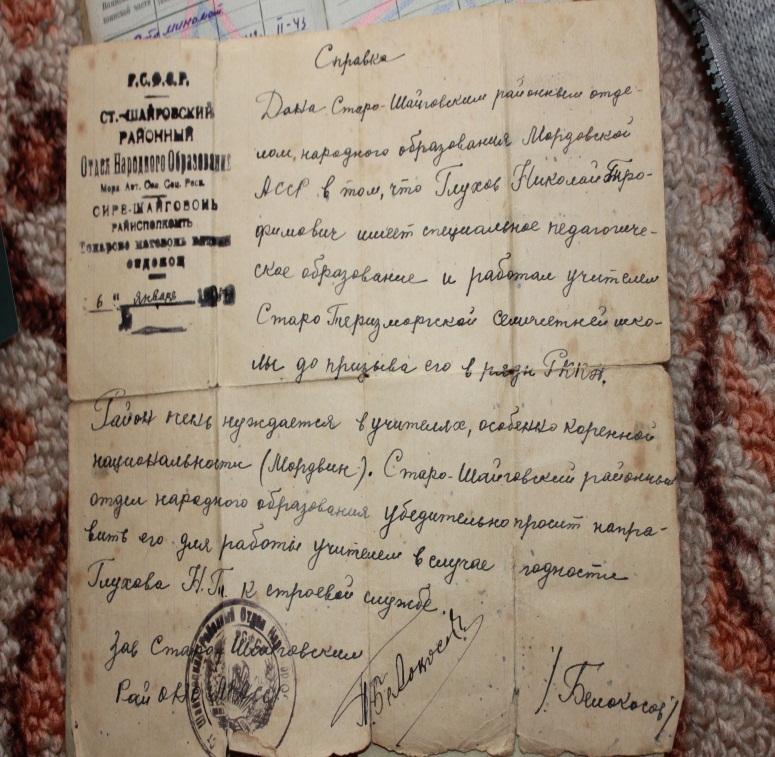 II-43
Р.С.Ф.С.Р.
СТ.-ШАЙГОВСКИЙ
РАЙОННЫЙ
Отдел Народного Образования
Морд. Авт. Сов. Соц. Респ.
СИРЕ-ШАЙГОВОНЬ
РАЙИСПОЛКОМТЬ
отделоц
6 " января
Справка
Дана Старо-Шайговским районным отде-
лом, народного образования Мордовской
АССР в том, что Глухов Николай Тро-
фимович имеет специальное педагогиче-
ское образование и работал учителем
Старо Теризморгской семилетней шко-
лы до призыва его в ряды РККА.
Район нуждается в учителях, особенно коренной
национальности (Мордвин). Старо-Шайговский районный
отдел народного образования убедительно просит напра-
вить его для работы учителем в случае годности
Глухова Н.Т. к строевой службе.
Зав Старо Шайговским
Рай ОНО
/Белокосов/